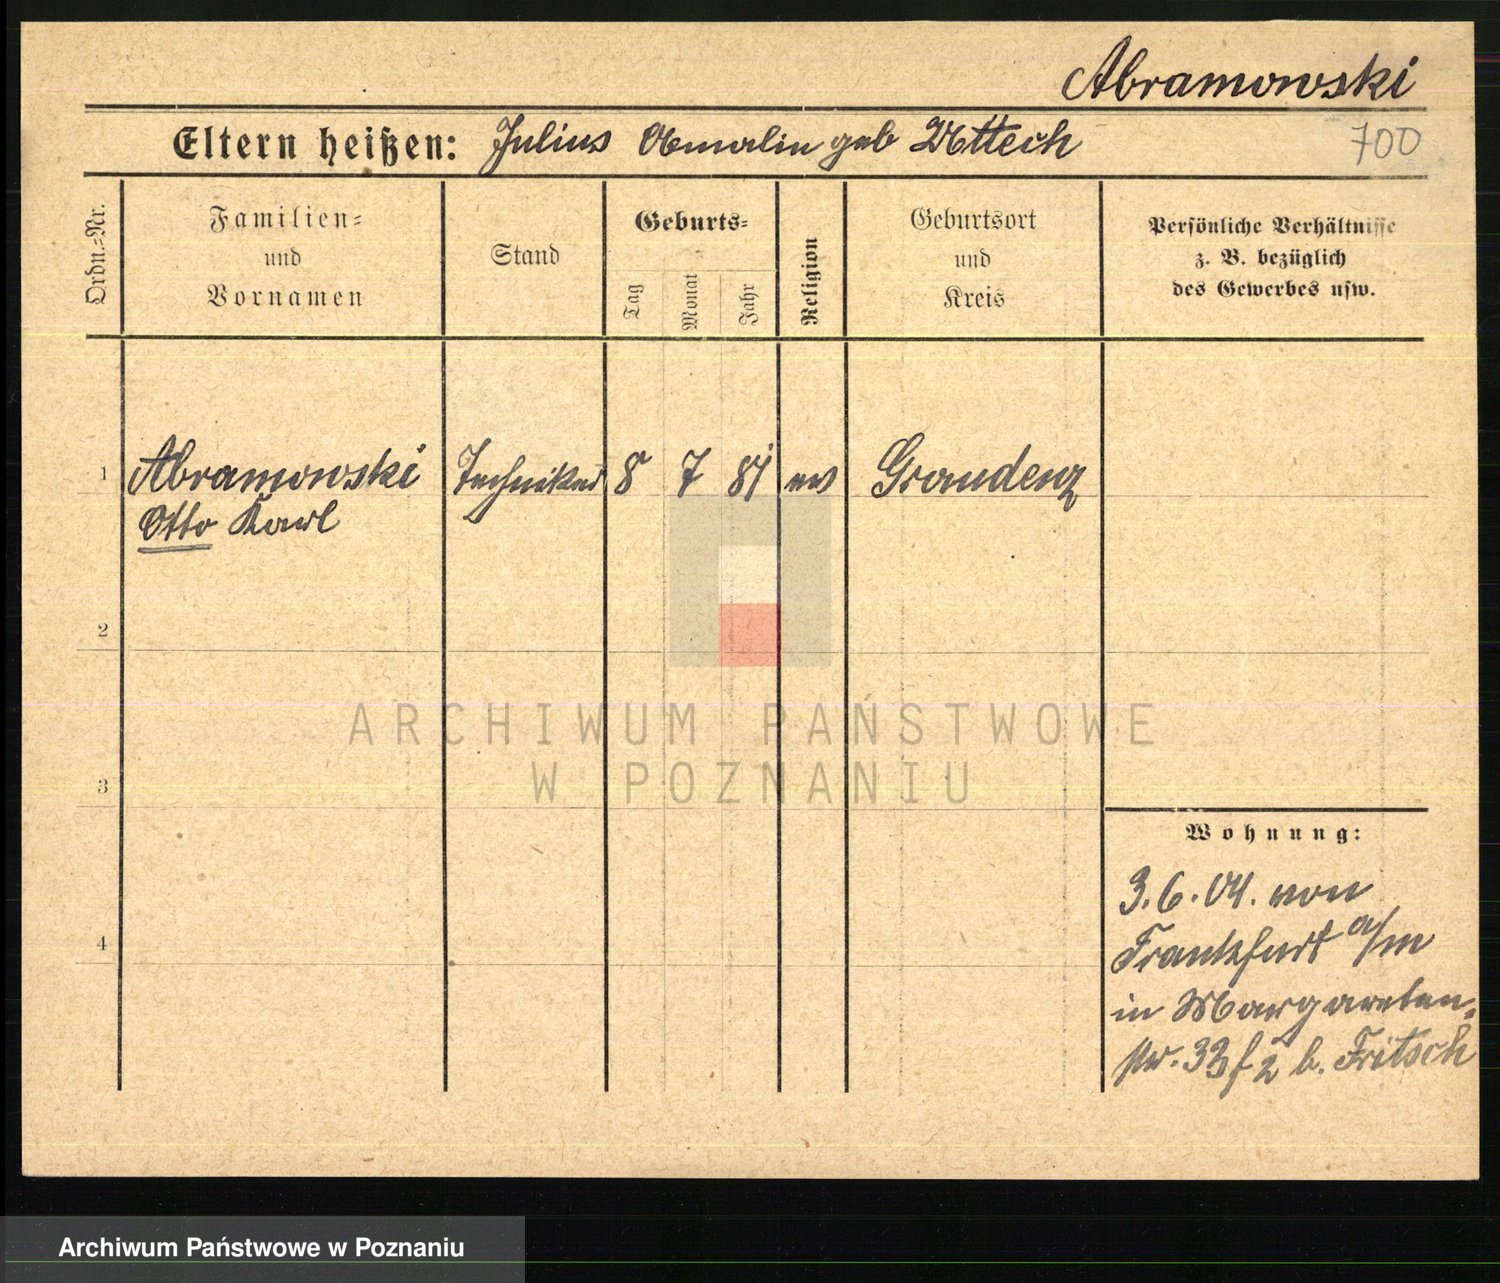 Abramowski
Eltern heißen: Julius Amalie geb
700
Ordn.=Nr.
Familien=
und
Vornamen
Stand
Geburts=
Tag
Monat
Jahr
Religion
Geburtsort
und
Kreis
Persönliche Verhältnisse
z. B. bezüglich
des Gewerbes usw.
1 Abramowski Techniker 8 7 81 ev Graudenz
Otto Karl
2
3
4
ARCHIWUM PAŃSTWOWE
W POZNANIU
Wohnung:
3.6.04. von
Frankfurt a/m
in Margareten=
str. 33 b. Fritsch
Archiwum Państwowe w Poznaniu